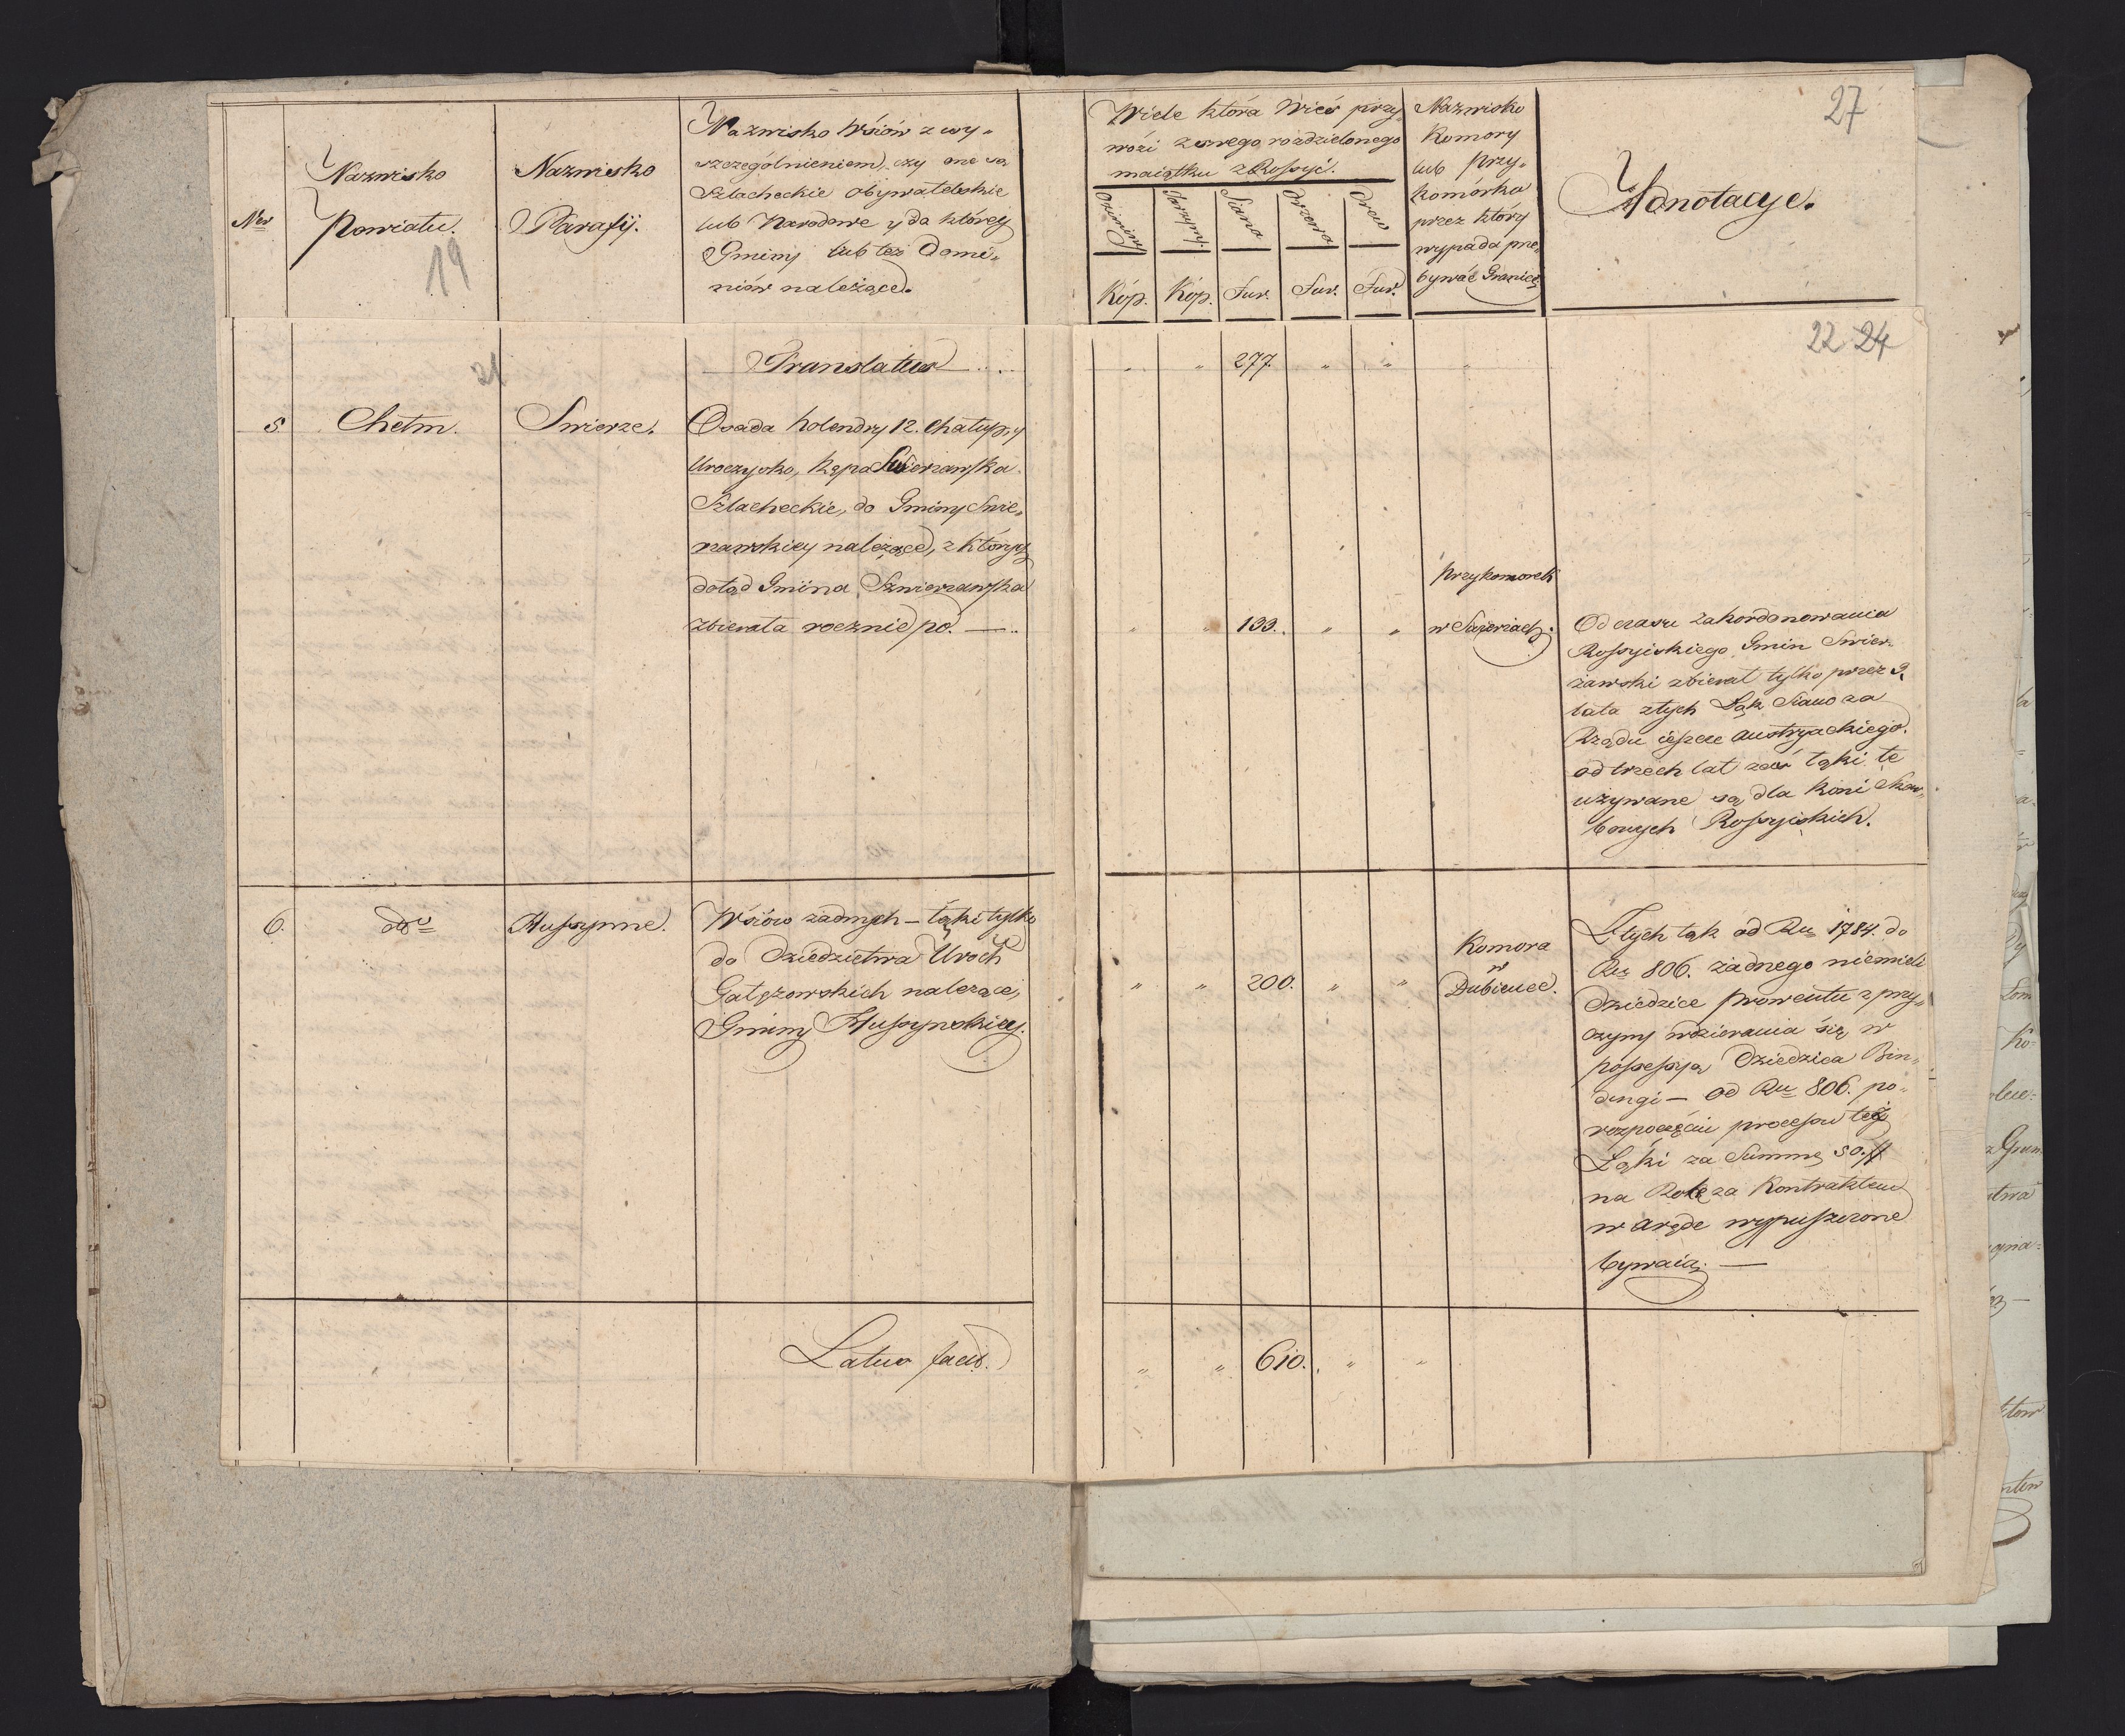 27
Nro
Nazwisko
Powiatu.
19
Nazwisko
Parafij.
Nazwisko Wsiów z wy-
szczególnieniem, czy one są
Szlacheckie Obywatelskie
lub Narodowe y do którey
Gminy lub też Domi-
niów należące.
Wiele która Wieś przy-
wozi z swego rozdzielonego
maiątku z Rossyi.
Oziminy
Jarzyny.
Siana
Drzewa
Drew
Kóp.
Kóp.
Fur.
Fur.
Fur.
Nazwisko
Komory
lub przy-
komórka
przez który
wypada prze-
bywać Granicę
Adnotacye.
22 24
21
Translatus
" " 277. " " "
5 Chełm. Swierze.
Osada holendry 12. Chałupy, y
Uroczysko, Kępa Swierzawska
Szlacheckie, do Gminy Swie-
rzawskiey należące, z których
dotąd Gmina Szwierzawska
zbierała rocznie po. —
" " 133. " "
Przykomorek
w Swierżach.
Od czasu zakordonowania
Rossyiskiego Gmin Swier-
żawski zbierał tylko przez 2
lata z tych Łąk Siano za
Rządu ieszcze Austryackiego.
od trzech lat zaś łąki te
używane są dla Koni Skar-
bowych Rossyiskich.
6. dto Hussynne.
Wsiów żadnych – łąki tylko
do Dziedzictwa Uroch
Gałęzowskich należące,
Gminy Hussynskiey.
" " 200. " "
Komora
w
Dubience.
Z tych łąk od Ru 1784. do
Ru 806. żadnego niemieli
Dziedzice prowentu z przy-
czyny wdzierania się w
possessyą Dziedzica Bin-
dugi – od Ru 806. po
rozpoczęciu processu też
Łąki za Summę 50. ff
na Rok za Kontraktem
w arędę wypuszczone
bywaią. —
Latus facit.
" " 610. " "